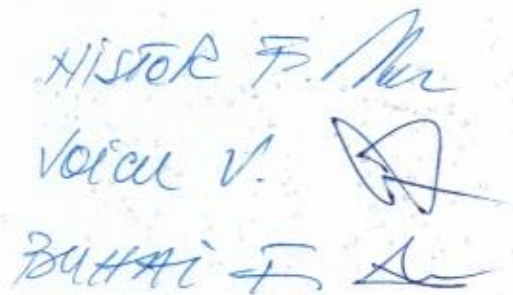 NISTOR F.
Voicu V.
BUHAI F.